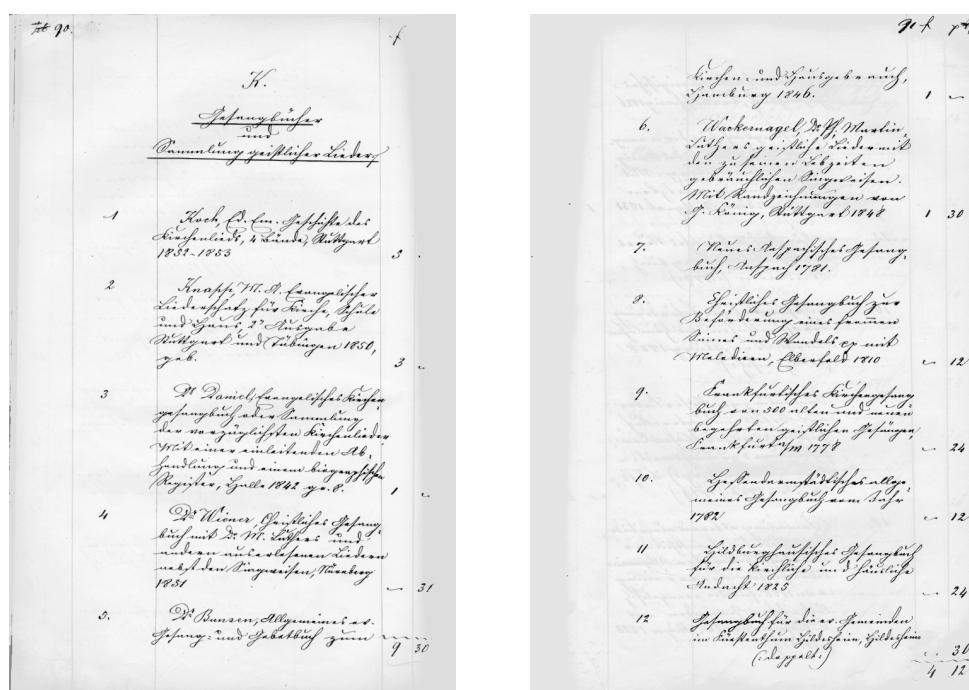 90.
f
K.
Gesangbücher
und
Sammlung geistlicher Lieder
1 Koch, Ed. Em. Geschichte des
Kirchenlieds, 4 Bände, Stuttgart
1852-1853 3 .
2 Knapp, M. A. Evangelischer
Liederschatz für Kirche, Schule
und Haus, 2te Ausgabe
Stuttgart und Tübingen 1850,
geb. 3 -
3 Dr Daniel, Evangelisches Kirchen
gesangbuch oder Sammlung
der vorzüglichsten Kirchenlieder
Mit einer einleitenden Ab-
handlung und einem biographischen
Register, Halle 1842 gr. 8. 1 -
4 Dr Wiener, Christliches Gesang
buch mit Dr. M. Luthers und
andern auserlesenen Liedern
nebst den Singweisen, Nürnberg
1851 - 31
5. Dr Bunsen, Allgemeines ev.
Gesang- und Gebetbuch zum
9 30
91 f
Kirchen- und Hausgebrauch,
Hamburg 1846. 1 -
6. Wackernagel, Dr Ph. Martin
Luthers geistliche Lieder mit
den zu seinen Lebzeiten
gebräuchlichen Singweisen.
Mit Randzeichnungen von
G. König, Stuttgart 1848 1 30
7. Neues Anspachisches Gesang-
buch, Anspach 1781.
8. Christliches Gesangbuch zur
Beförderung eines frommen
Sinnes und Wandels mit
Melodieen, Elberfeld 1810 - 12
9. Frankfurtisches Kirchengesang
buch von 500 alten und neuen
begehrten geistlichen Gesängen,
Frankfurt a/m 1778 - 24
10. Hessendarmstädtisches allge-
meines Gesangbuch vom Jahr
1782 - 12
11 Hildburghausisches Gesangbuch
für die kirchliche und häusliche
Andacht 1825 - 24
12 Gesangbuch für die ev. Gemeinden
im Fürstenthum Hildesheim, Hildesheim
(: doppelt :) - 30
4 12